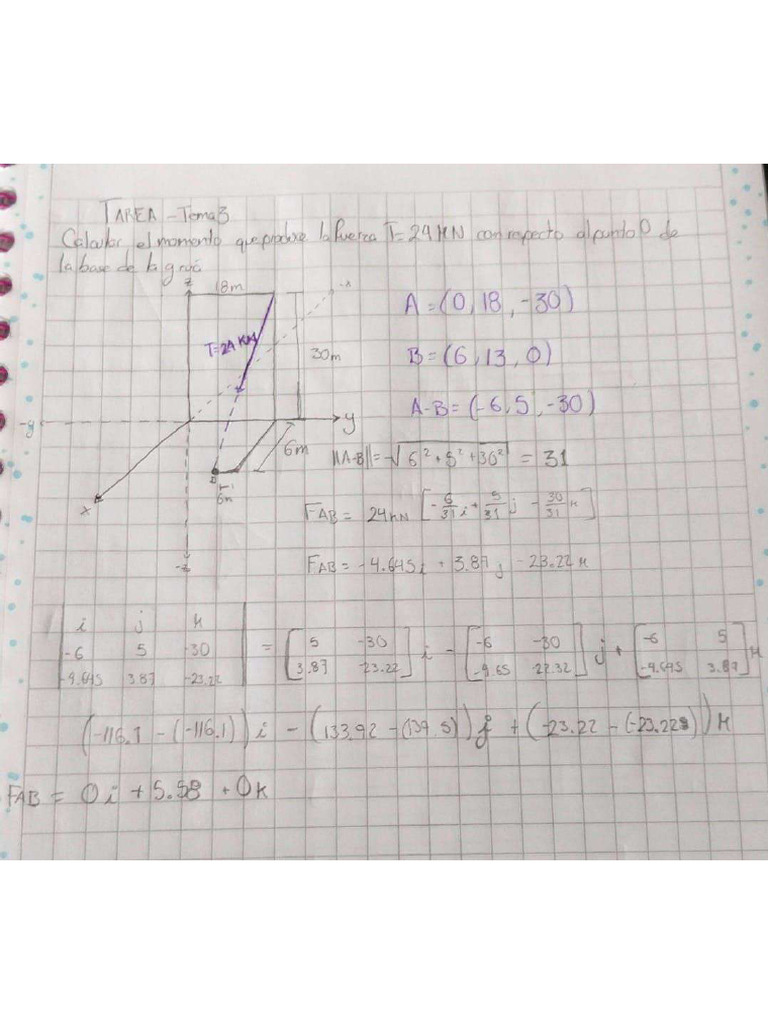 TAREA - Tema 3
Calcular el momento que produce la fuerza T=24 KN con respecto al punto O de
la base de la grúa
z
18m
-x
T=24 KN
30m
-y
y
6m
B
6m
x
-z
A = (0, 18, -30)
B = (6, 13, 0)
A-B = (-6, 5, -30)
||A-B|| = √6² + 5² + 30² = 31
FAB = 24KN [-6/31 i + 5/31 j - 30/31 K]
FAB = -4.645i + 3.87j - 23.22 K
i j K
-6 5 -30
-4.645 3.87 -23.22
= [5 -30
3.87 -23.22] i - [-6 -30
-4.65 -22.32] j + [-6 5
-4.645 3.87] K
(-116.1 - (-116.1)) i - (133.92 - (139.5)) j + (-23.22 - (-23.225)) K
FAB = 0i + 5.58 + 0K